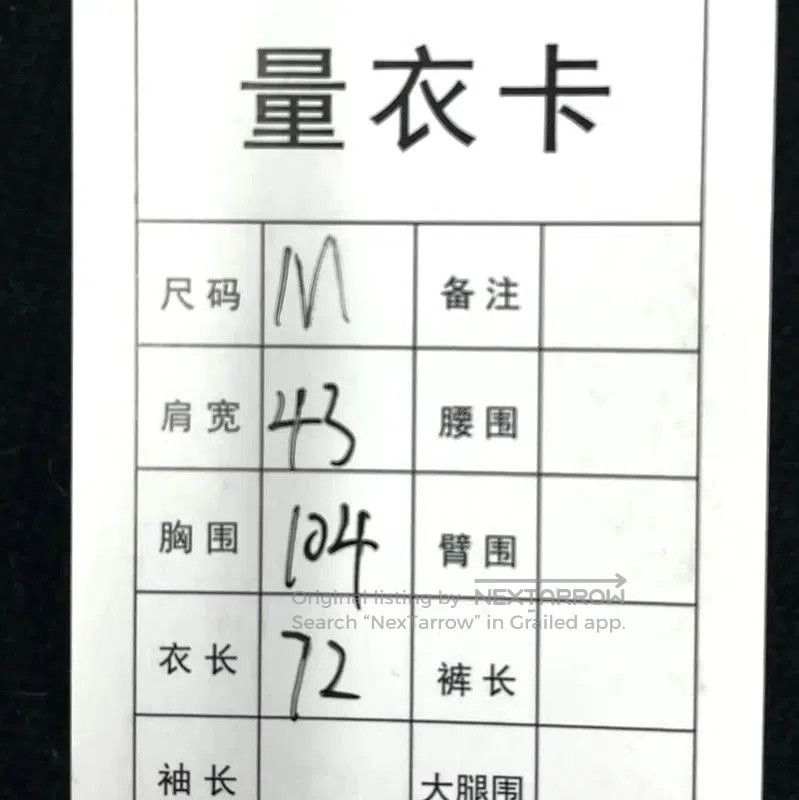 量衣卡
尺码 M 备注
肩宽 43 腰围
胸围 104 臂围
Original listing by NEXTARROW
Search “NexTarrow” in Grailed app.
衣长 72 裤长
袖长 大腿围